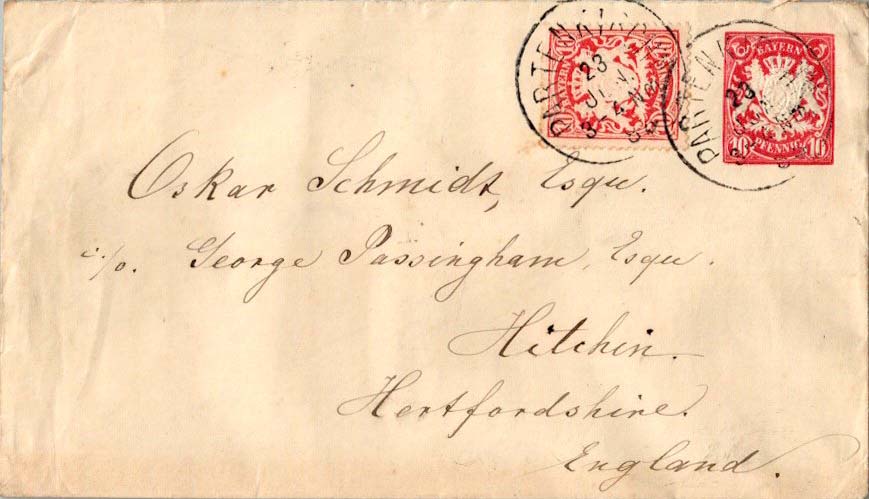 PARTENKIRCHEN
23
JUN.
3-4 NM
BAYERN
10 PFENNIG 10
PARTENKIRCHEN
23
Oskar Schmidt, Esqu.
c/o. George Passingham, Esqu.
Hitchin.
Hertfordshire.
England.